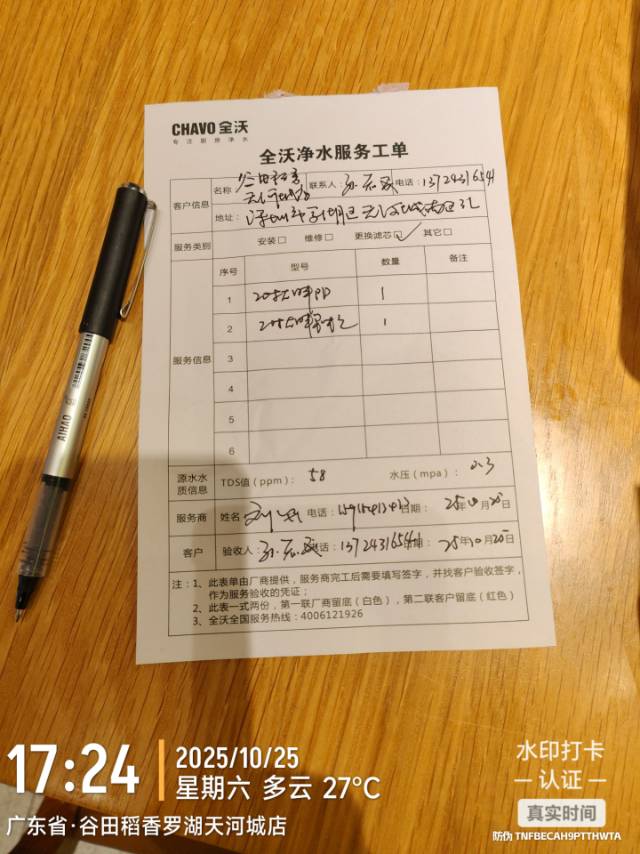 CHAVO 全沃
专注厨房净水
全沃净水服务工单
客户信息 名称：谷田稻香 天河城店 联系人： 电话：13724316541
地址：深圳市罗湖区天河城
服务类别 安装□ 维修□ 更换滤芯☑ 其它□
服务信息 序号 型号 数量 备注
1 20寸大胖PP 1
2 20寸大胖 1
3
4
5
6
源水水质信息 TDS值（ppm）： 58 水压（mpa）： 0.3
服务商 姓名 电话： 日期： 25年10月25日
客户 验收人： 电话：13724316541 日期： 25年10月25日
注：1、此表单由厂商提供，服务商完工后需要填写签字，并找客户验收签字，
作为服务验收的凭证；
2、此表一式两份，第一联厂商留底（白色），第二联客户留底（红色）
3、全沃全国服务热线：4006121926
AIHAO
17:24 2025/10/25
星期六 多云 27°C
广东省·谷田稻香罗湖天河城店
水印打卡
认证
真实时间
防伪 TNFBECAH9PTTHWTA